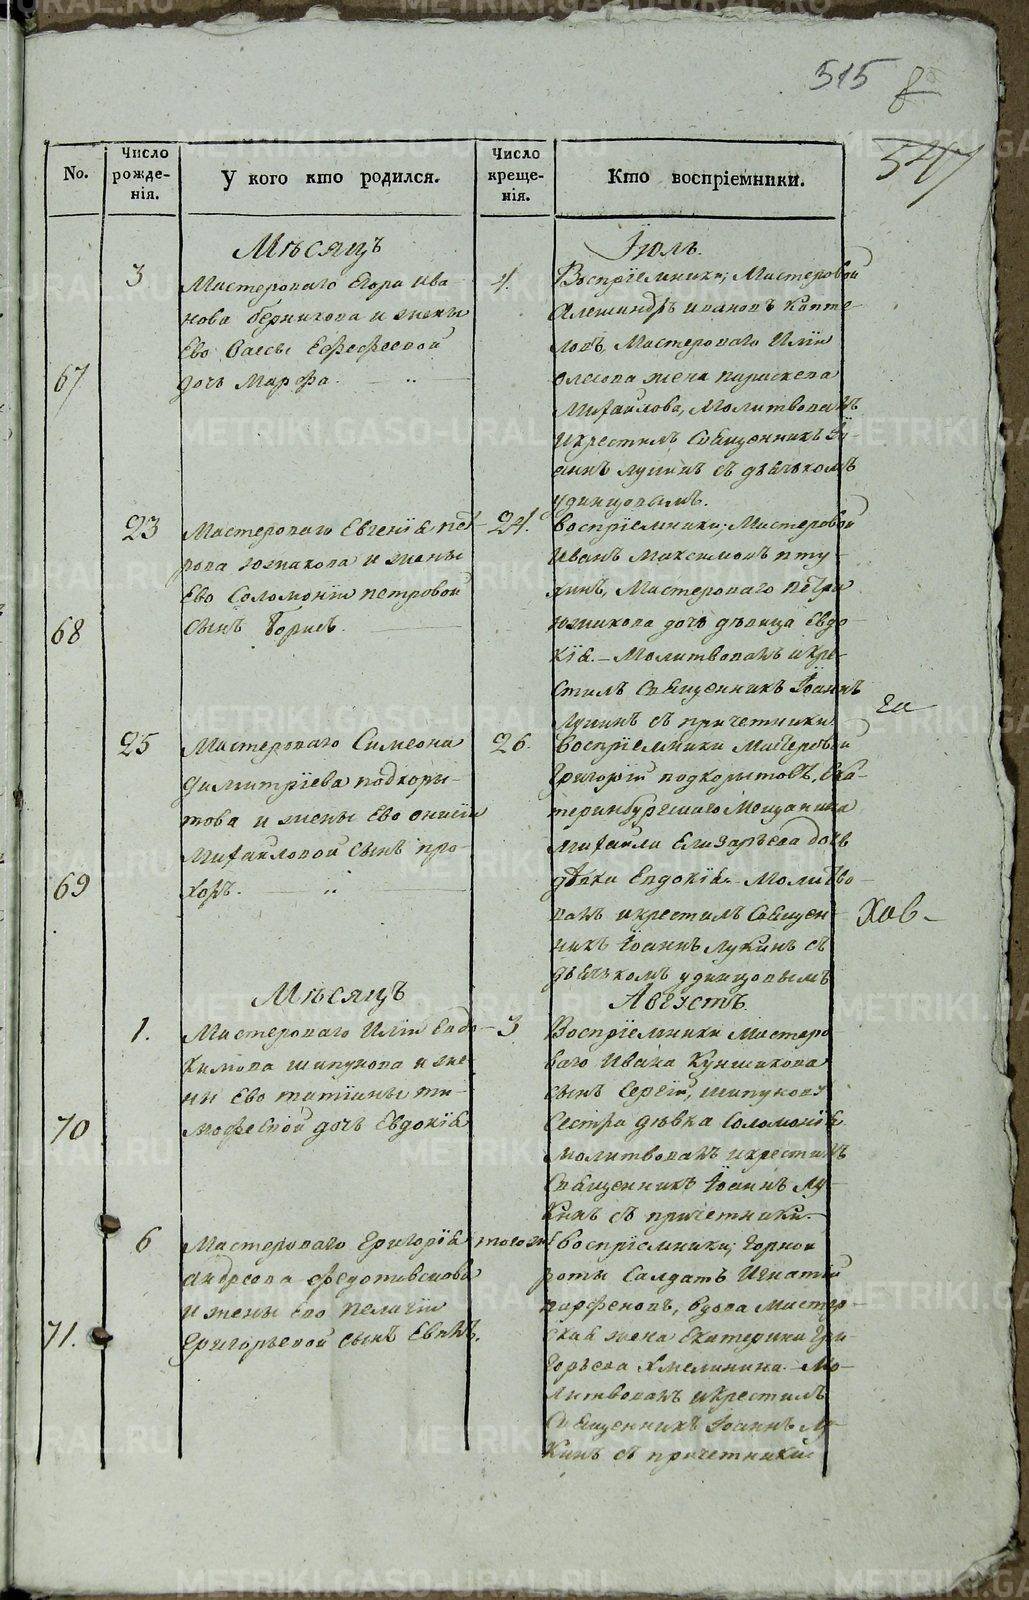 515
547
No.
Число рожденія.
У кого кто родился.
Число крещенія.
Кто воспріемники.
Мѣсяцъ
Іюль.
67
3
Мастероваго Егора Ива-
нова Берникова и жены
Ево
дочь Марфа.
4.
Воспріемники; Мастеровой
Александръ Ивановъ Копте-
ловъ, Мастероваго Иліи
жена Параскева
Михайлова, Молитвовалъ
и крестилъ Священникъ Іо-
аннъ Лукинъ съ дьячкомъ
Удинцовымъ.
68
23
Мастероваго Евгенія Пет-
рова Южакова и жены
Ево Соломоніи Петровой
сынъ Борисъ.
24.
Воспріемники; Мастеровой
Иванъ Максимовъ Пту-
хинъ, Мастероваго Петра
Южакова дочь дѣвица Евдо-
кія. Молитвовалъ и кре-
стилъ Священникъ Іоаннъ
Лукинъ съ причетники.
69
25
Мастероваго Симеона
Димитріева Подкоры-
това и жены Ево Онисіи
Михайловой сынъ Про-
хоръ.
26.
Воспріемники Мастеровой
Григорій Подкорытовъ, Ека-
теринбургскаго Мещанина
Михайла Елизарьева дочь
дѣвка Евдокія. Молитво-
валъ и крестилъ Священ-
никъ Іоаннъ Лукинъ съ
дьячкомъ Удинцовымъ
Мѣсяцъ
Августъ.
70
1.
Мастероваго Иліи Евдо-
кимова Шипунова и же-
ны Ево Татіаны Ти-
мофевной дочь Евдокія
3
Воспріемники Мастеро
ваго Ивана Куншикова
сынъ Сергій, Шипунова
Сестра дѣвка Соломонія
Молитвовалъ и крестилъ
Священникъ Іоаннъ Лу-
кинъ съ причетники.
71.
6
Мастероваго Григорія
Андреева
и жены Ево Пелагіи
Григорьевой сынъ
того ж
Воспріемники; Горной
роты Салдатъ Игнатій
Парфеновъ, вдова Мастер-
ская жена Екатерина Гри-
горьева Хмелинина. Мо-
литвовалъ и крестилъ
Священникъ Іоаннъ Лу-
кинъ съ причетники
METRIKI.GASO-URAL.RU